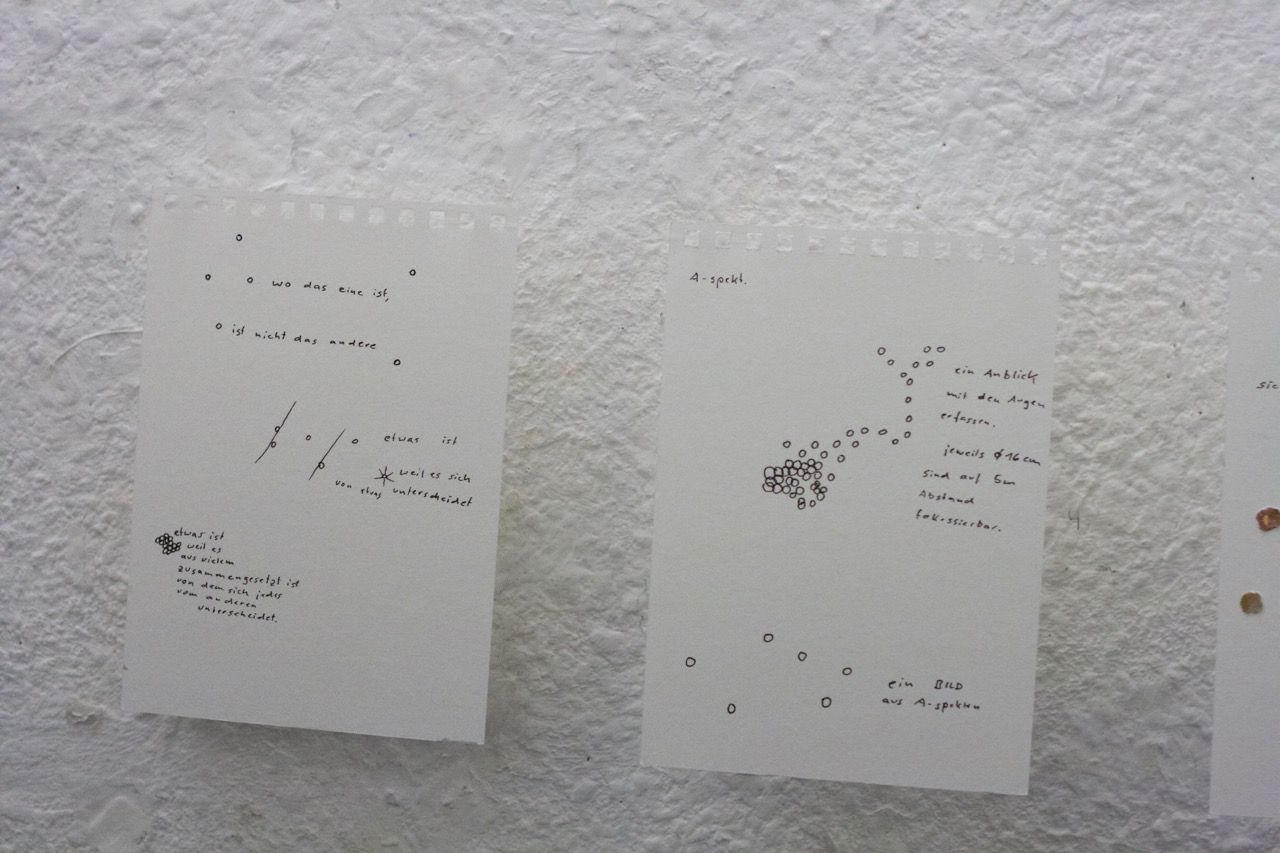 wo das eine ist,
ist nicht das andere
etwas ist
weil es sich
von etwas unterscheidet
etwas ist
weil es
aus vielem
zusammengesetzt ist
von dem sich jedes
vom anderen
unterscheidet.
A-spekt.
ein Anblick
mit den Augen
erfassen.
jeweils ϕ 16 cm
sind auf 5m
Abstand
fokussierbar.
ein BILD
aus A-spekten
4
sic